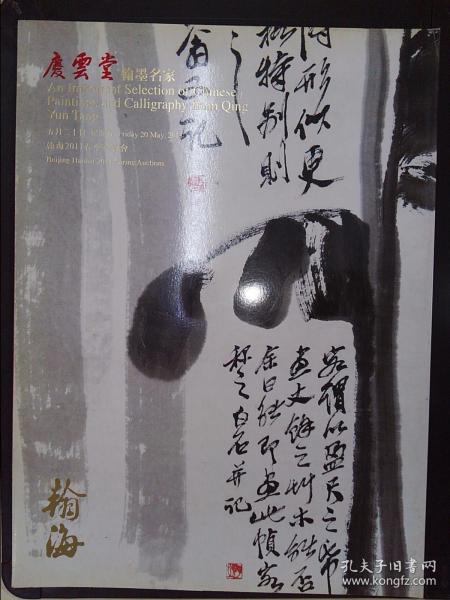 慶雲堂 翰墨名家
An Important Selection of Chinese
Paintings and Calligraphy from Qing
Yun Tang
Friday 20 May, 2011
翰海2011春季拍賣會
Beijing Hanhai 2011 Spring Auctions
形似更
特别則
翁又記
客謂以盈尺之幣
畫丈餘之草木能否
余曰能即畫此幀客
攜之白石并記
翰海
孔夫子旧书网
www.kongfz.com